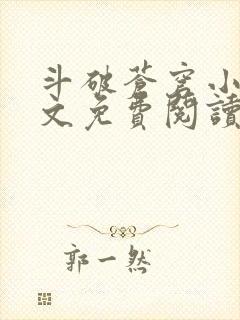 斗破苍穹小
文免費閱讀
郭一然